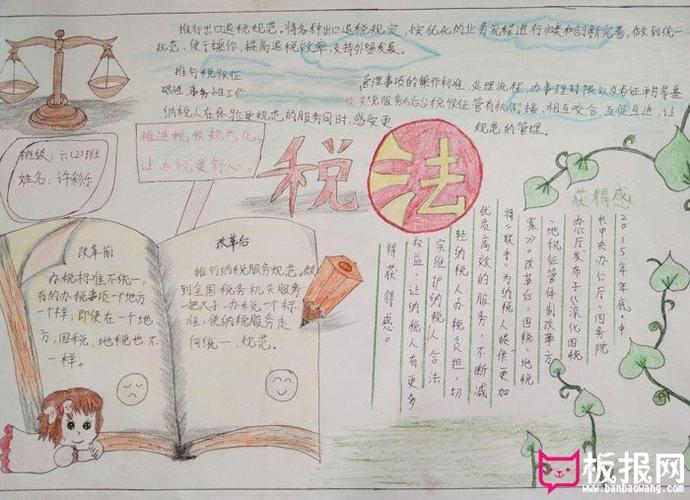 推行出口退税规范。将各种出口退税规定,按优化的业务流程进行归类和创新完善,做到统一
规范,便于操作、提高退税效率,支持外贸发展。
推行税收征
管理事项的操作标准、处理流程,办事理时限以及
础性、事务性工作
纳税人在体验更规范的服务同时,感受更
规范的管理。
班级:六(2)班
姓名:许彩乐
推进税收规范化,
让办税更舒心。
税法
改革前
办税标准不统一,
有的办税事项一个地方
一个样;即使在一个地
方,国税、地税也不
一样。
改革后
推行纳税服务规范。做
到全国税务机关服务
一把尺子、办税一个标
准,使纳税服务走
向统一、规范。
获得感
2015年年底,中
共中央办公厅、国务院
办公厅发布了《深化国税
、地税征管体制改革方
案》。改革后,国税、地税
将“联手”为纳税人提供更加
优质高效的服务,不断减
轻纳税人办税负担,切
实维护纳税人合法
权益,让纳税人有更多
得获得感。
板报网
www.banbaowang.com